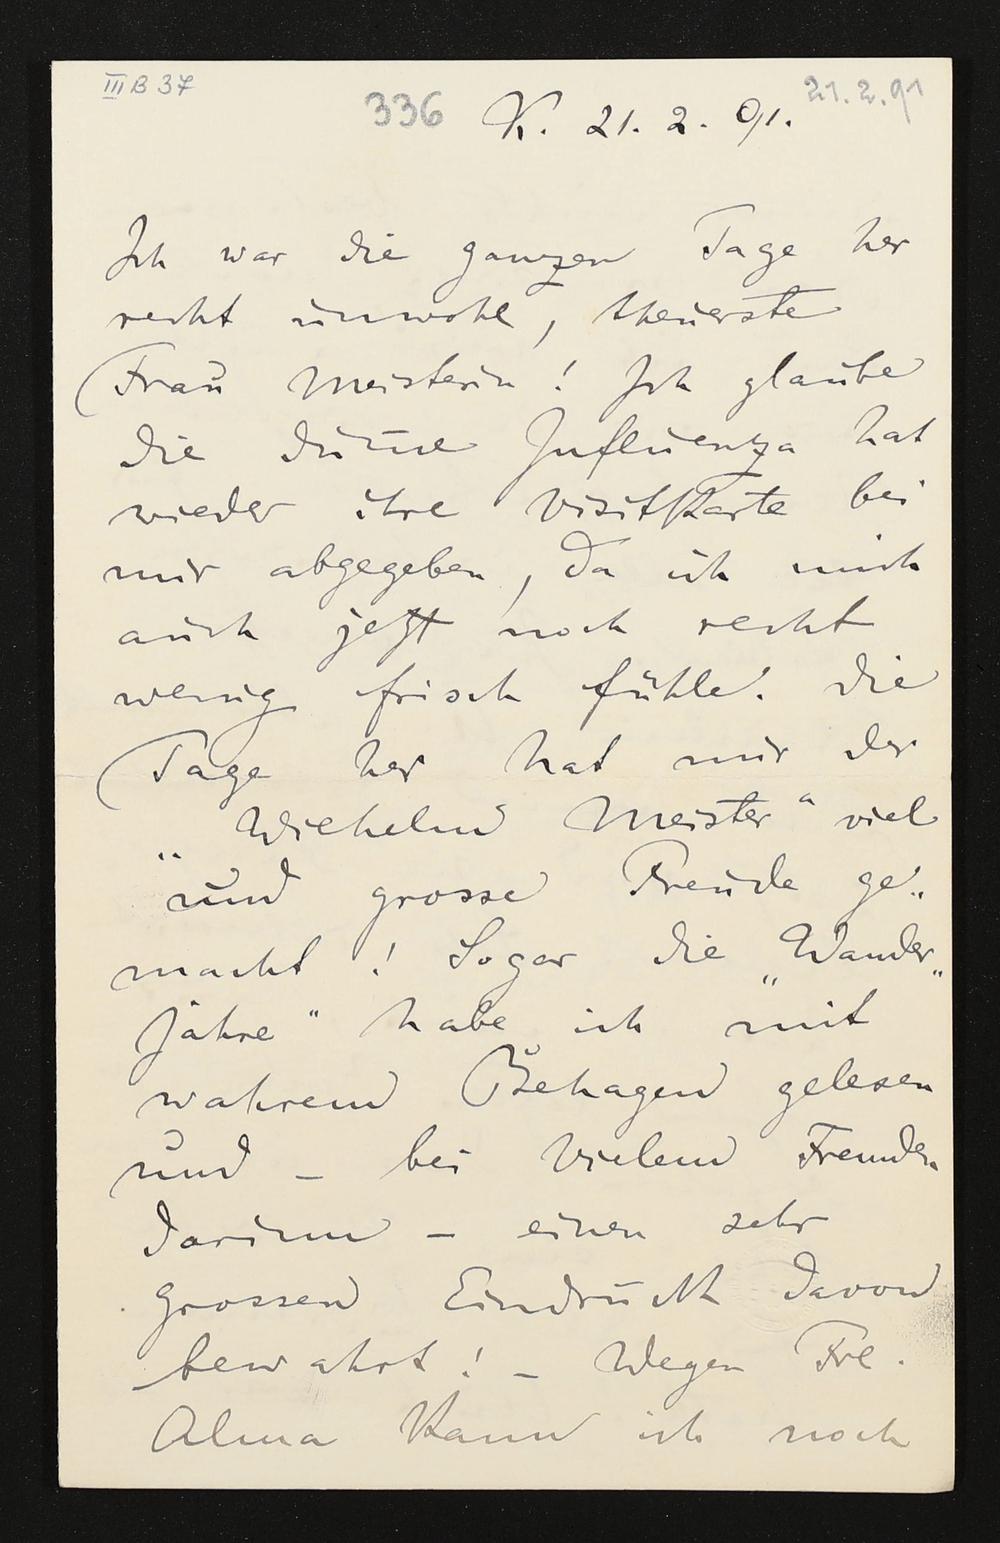 III B 37
336
21.2.91
K. 21. 2. 91.
Ich war die ganzen Tage her
recht unwohl, theuerste
Frau Meisterin! Ich glaube
die dumme Influenza hat
wieder ihre Visitkarte bei
mir abgegeben, da ich mich
auch jetzt noch recht
wenig frisch fühle. Die
Tage her hat mir der
„Wilhelm Meister“ viel
und grosse Freude ge„
macht! Sogar die „Wander„
jahre“ habe ich mit
wahrem Behagen gelesen
und – bei vielem Fremden
darinn – einen sehr
grossen Eindruck davon
bewahrt! – Wegen Frl.
Alma kann ich noch